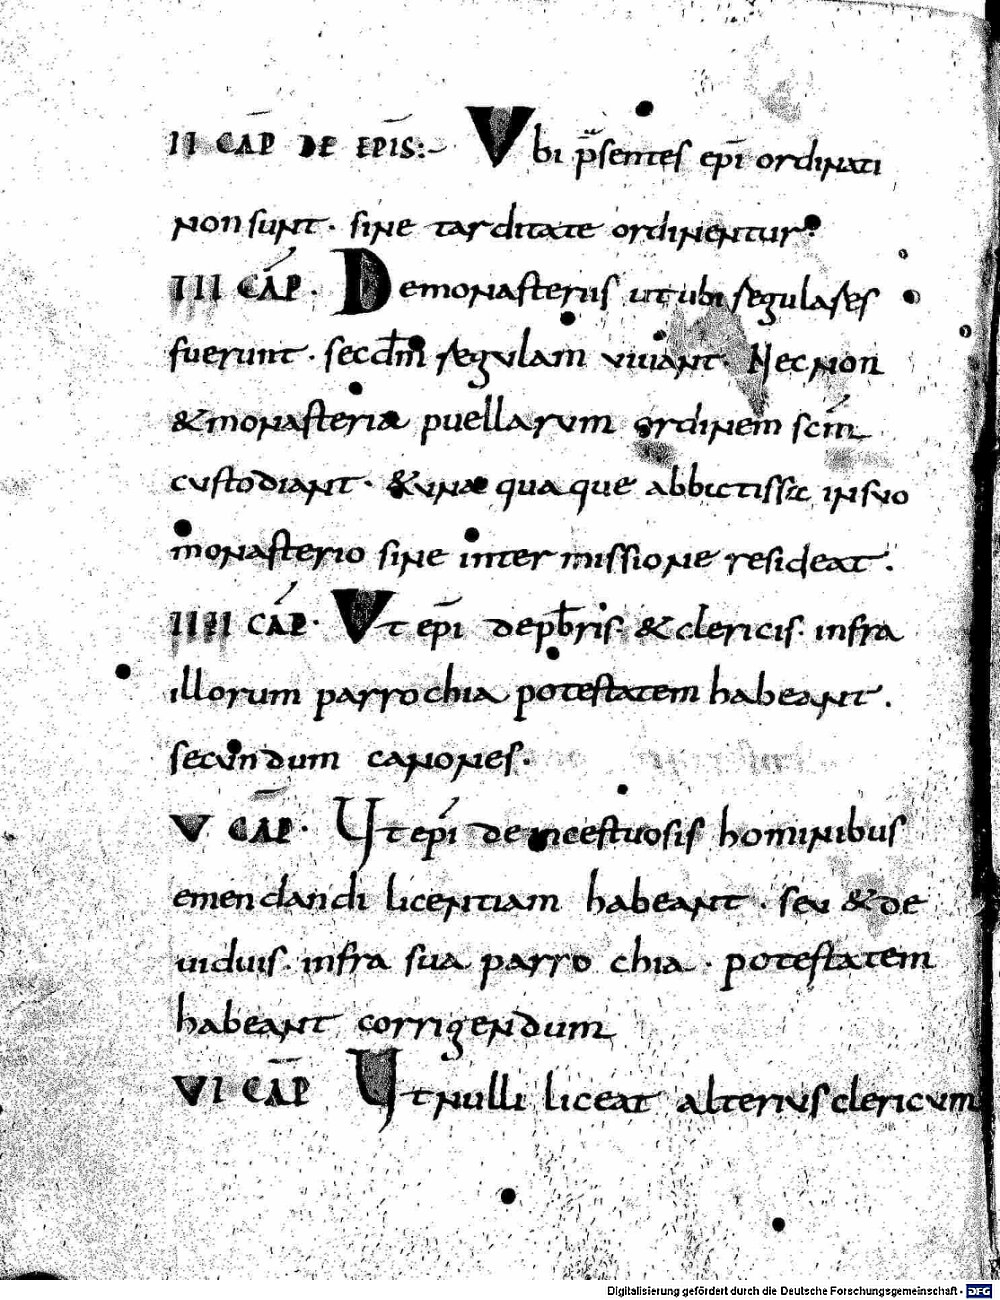 II CAP̄ DE EPĪS:– Vbi p̄sentes epī ordinati
non sunt · sine tarditate ordinentur·
III CAP̄ · De monasteriis ut ubi regulares
fuerunt · secdm̄ regulam uiuant· Nec non
& monasteria puellarum ordinem scm̄
custodiant · & unaquaque abbatissa in suo
monasterio sine intermissione resideat .
IIII CAP̄ · Vt epī de pb̄ris · & clericis · infra
illorum parrochia potestatem habeant .
secundum canones ·
V CAP̄ · Ut epī de incestuosis hominibus
emendandi licentiam habeant · seu & de
uiduis · infra sua parrochia · potestatem
habeant corrigendum
VI CAP̄ Ut nulli liceat alterius clericum
Digitalisierung gefördert durch die Deutsche Forschungsgemeinschaft - DFG